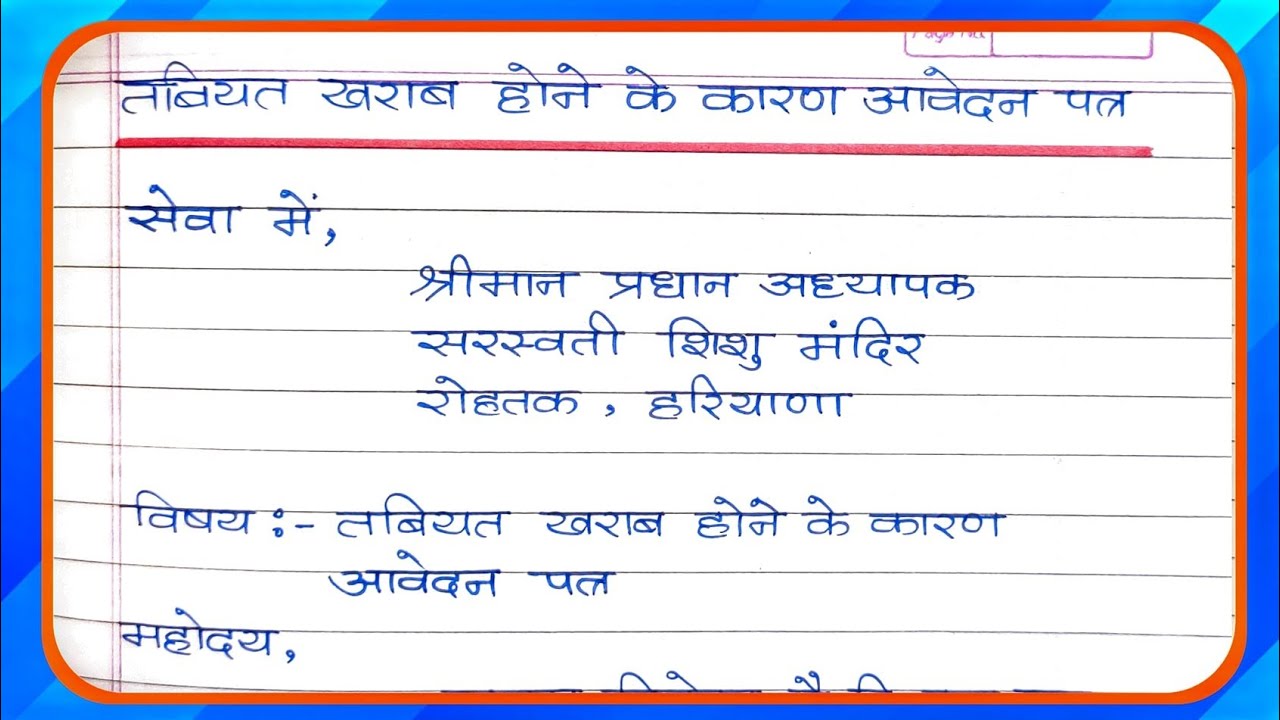 तबियत खराब होने के कारण आवेदन पत्र
सेवा में,
श्रीमान प्रधान अध्यापक
सरस्वती शिशु मंदिर
रोहतक , हरियाणा
विषय :- तबियत खराब होने के कारण
आवेदन पत्र
महोदय,